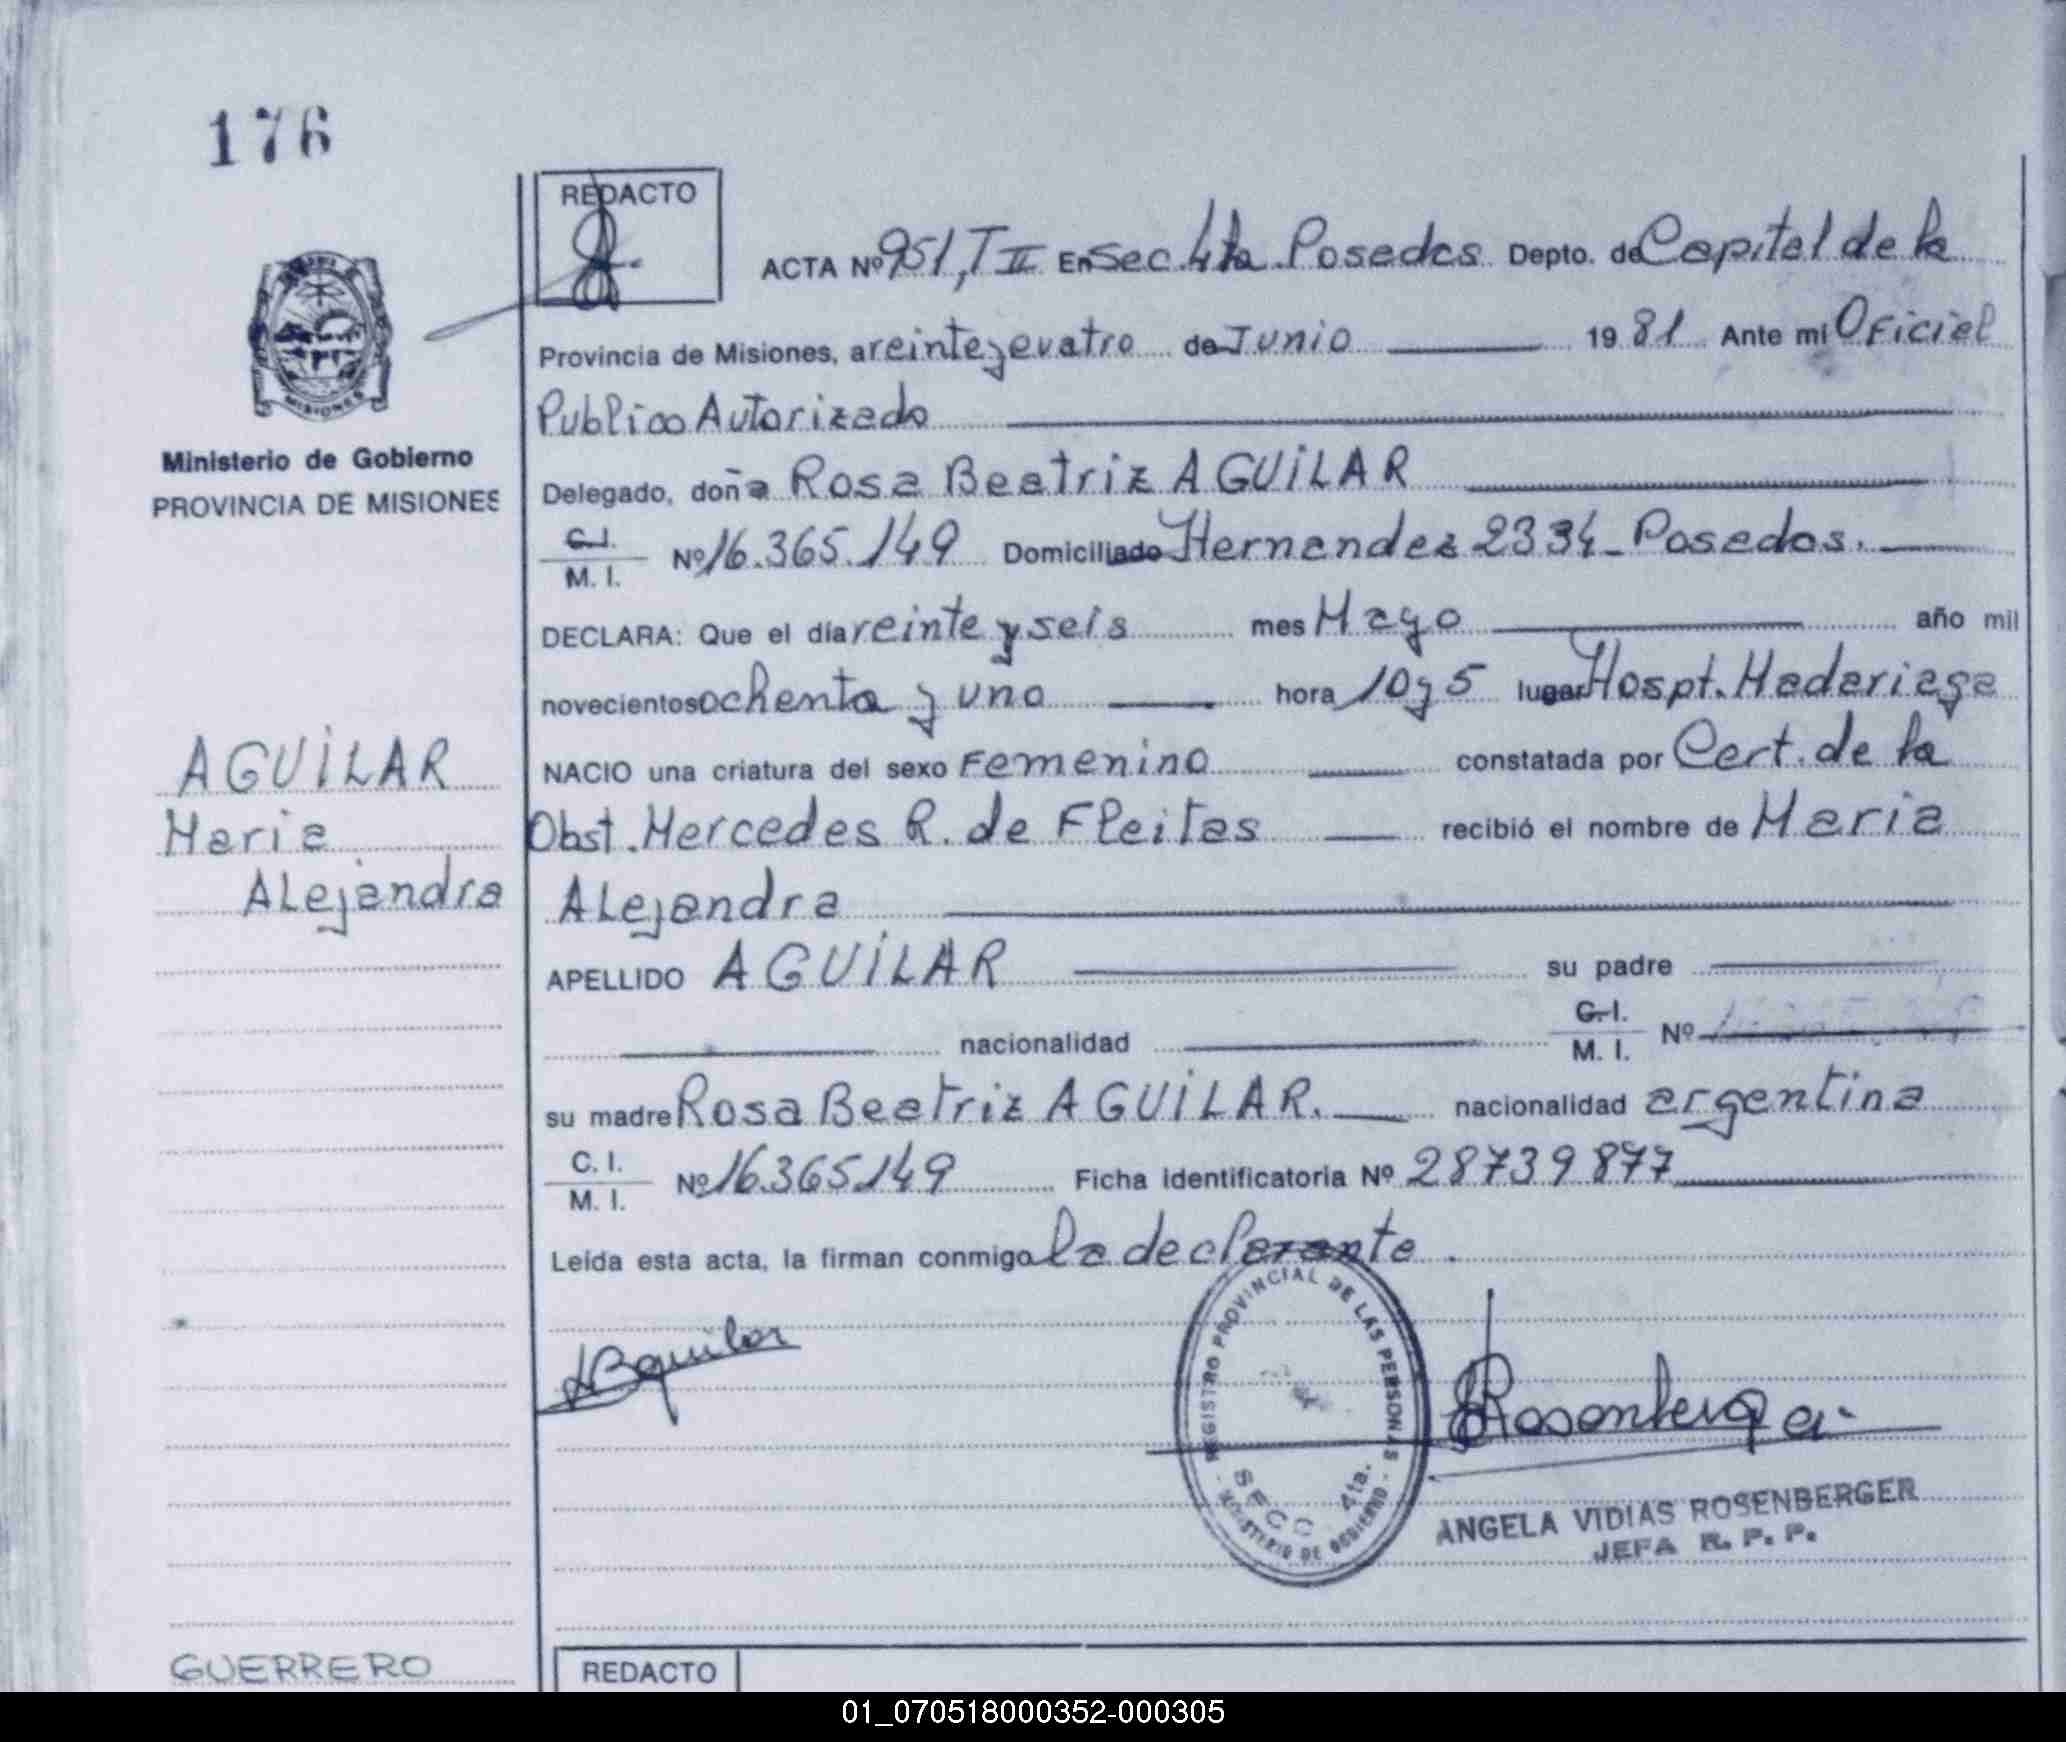 176
REDACTO
ACTA Nº 951, T II En Sec. 4ta. Posadas Depto. de Capital de la
Provincia de Misiones, a veinte y cuatro de Junio 19 81 Ante mi Oficial
Publico Autorizado
MISIONES
Ministerio de Gobierno
PROVINCIA DE MISIONES
Delegado, doña Rosa Beatriz AGUILAR
C. I.
M. I. Nº 16.365.149 Domiciliado Hernandez 2334 - Posadas.
DECLARA: Que el día veinte y seis mes Mayo año mil
novecientos ochenta y uno hora 10 y 5 lugar Hospt. Madariaga
AGUILAR
Maria
Alejandra
NACIO una criatura del sexo Femenino constatada por Cert. de la
Obst. Mercedes R. de Fleitas recibió el nombre de Maria
Alejandra
APELLIDO AGUILAR su padre
nacionalidad C. I.
M. I. Nº
su madre Rosa Beatriz AGUILAR. nacionalidad argentina
C. I.
M. I. Nº 16.365.149 Ficha identificatoria Nº 28739877
Leída esta acta, la firman conmigo la declarante.
RBAguilar
REGISTRO PROVINCIAL DE LAS PERSONAS
SECC. 4ta.
MINISTERIO DE GOBIERNO
Rosenberger
ANGELA VIDIAS ROSENBERGER
JEFA R. P. P.
GUERRERO
REDACTO
01_070518000352-000305